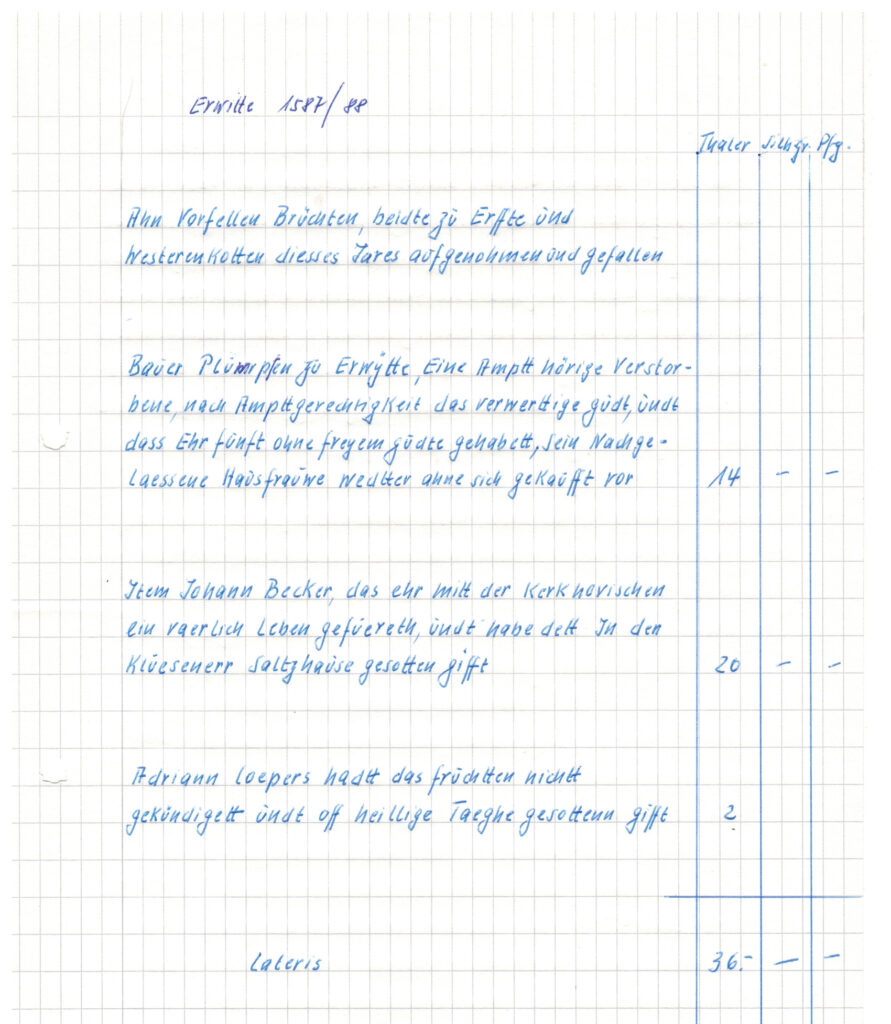 Erwitte 1587/88
Thaler Silbgr. Pfg.
Ahn Vorfellen Brüchten, beidte zu Erffte und
Westerenkotten diesses Jares aufgenohmen und gefallen
Bauer Plümpfen zu Erwÿtte, Eine Amptt hörige Verstor-
bene, nach Ampttgerechtigkeit das verwerttige gudt, undt
dass Ehr fünft ohne freyem gudte gehabett, sein Nachge-
Laessene Hausfrauwe wedtter ahne sich gekaufft vor 14 - -
Item Johann Becker, das ehr mitt der Kerkhovischen
ein vaerlich Leben gefuereth, undt habe dett In den
Kluesenerr Saltzhause gesotten gifft 20 - -
Adriann Loepers hadtt das früchtten nichtt
gekündigett undt off heillige Taeghe gesottenn gifft 2
Lateris 36.- - -